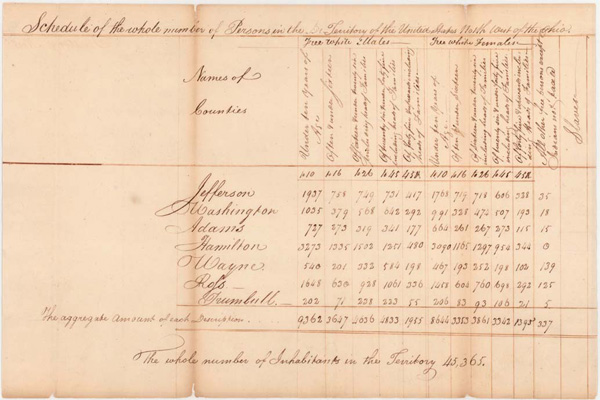 Schedule of the whole number of Persons in the Territory of the United States North West of the Ohio
Free white Males Free white Females
Names of
Counties
Under ten years of Age
Of ten & under sixteen
Of sixteen & under twenty six including heads of Families
Of twenty six & under forty five including heads of Families
Of forty five & upwards including heads of Families
Under ten years of Age
Of ten & under sixteen
Of sixteen & under twenty six including heads of Families
Of twenty six & under forty five including heads of Families
Of forty five & upwards including heads of Families
All other free persons except Indians not taxed
Slaves
Jefferson 1937 788 749 731 417 1768 719 718 606 328 35
Washington 1035 379 568 642 292 991 328 474 507 193 18
Adams 727 273 319 341 177 664 261 267 273 115 15
Hamilton 3273 1335 1502 1251 480 3090 1165 1297 954 344 0
Wayne 540 201 332 584 198 467 193 252 198 102 139
Ross 1648 630 928 1061 336 1458 604 760 698 292 125
Trumbull 202 71 238 223 55 206 83 93 106 21 5
The aggregate Amount of each Description 9362 3647 4636 4833 1955 8644 3353 3861 3342 1395 337
The whole number of Inhabitants in the Territory 45,365.